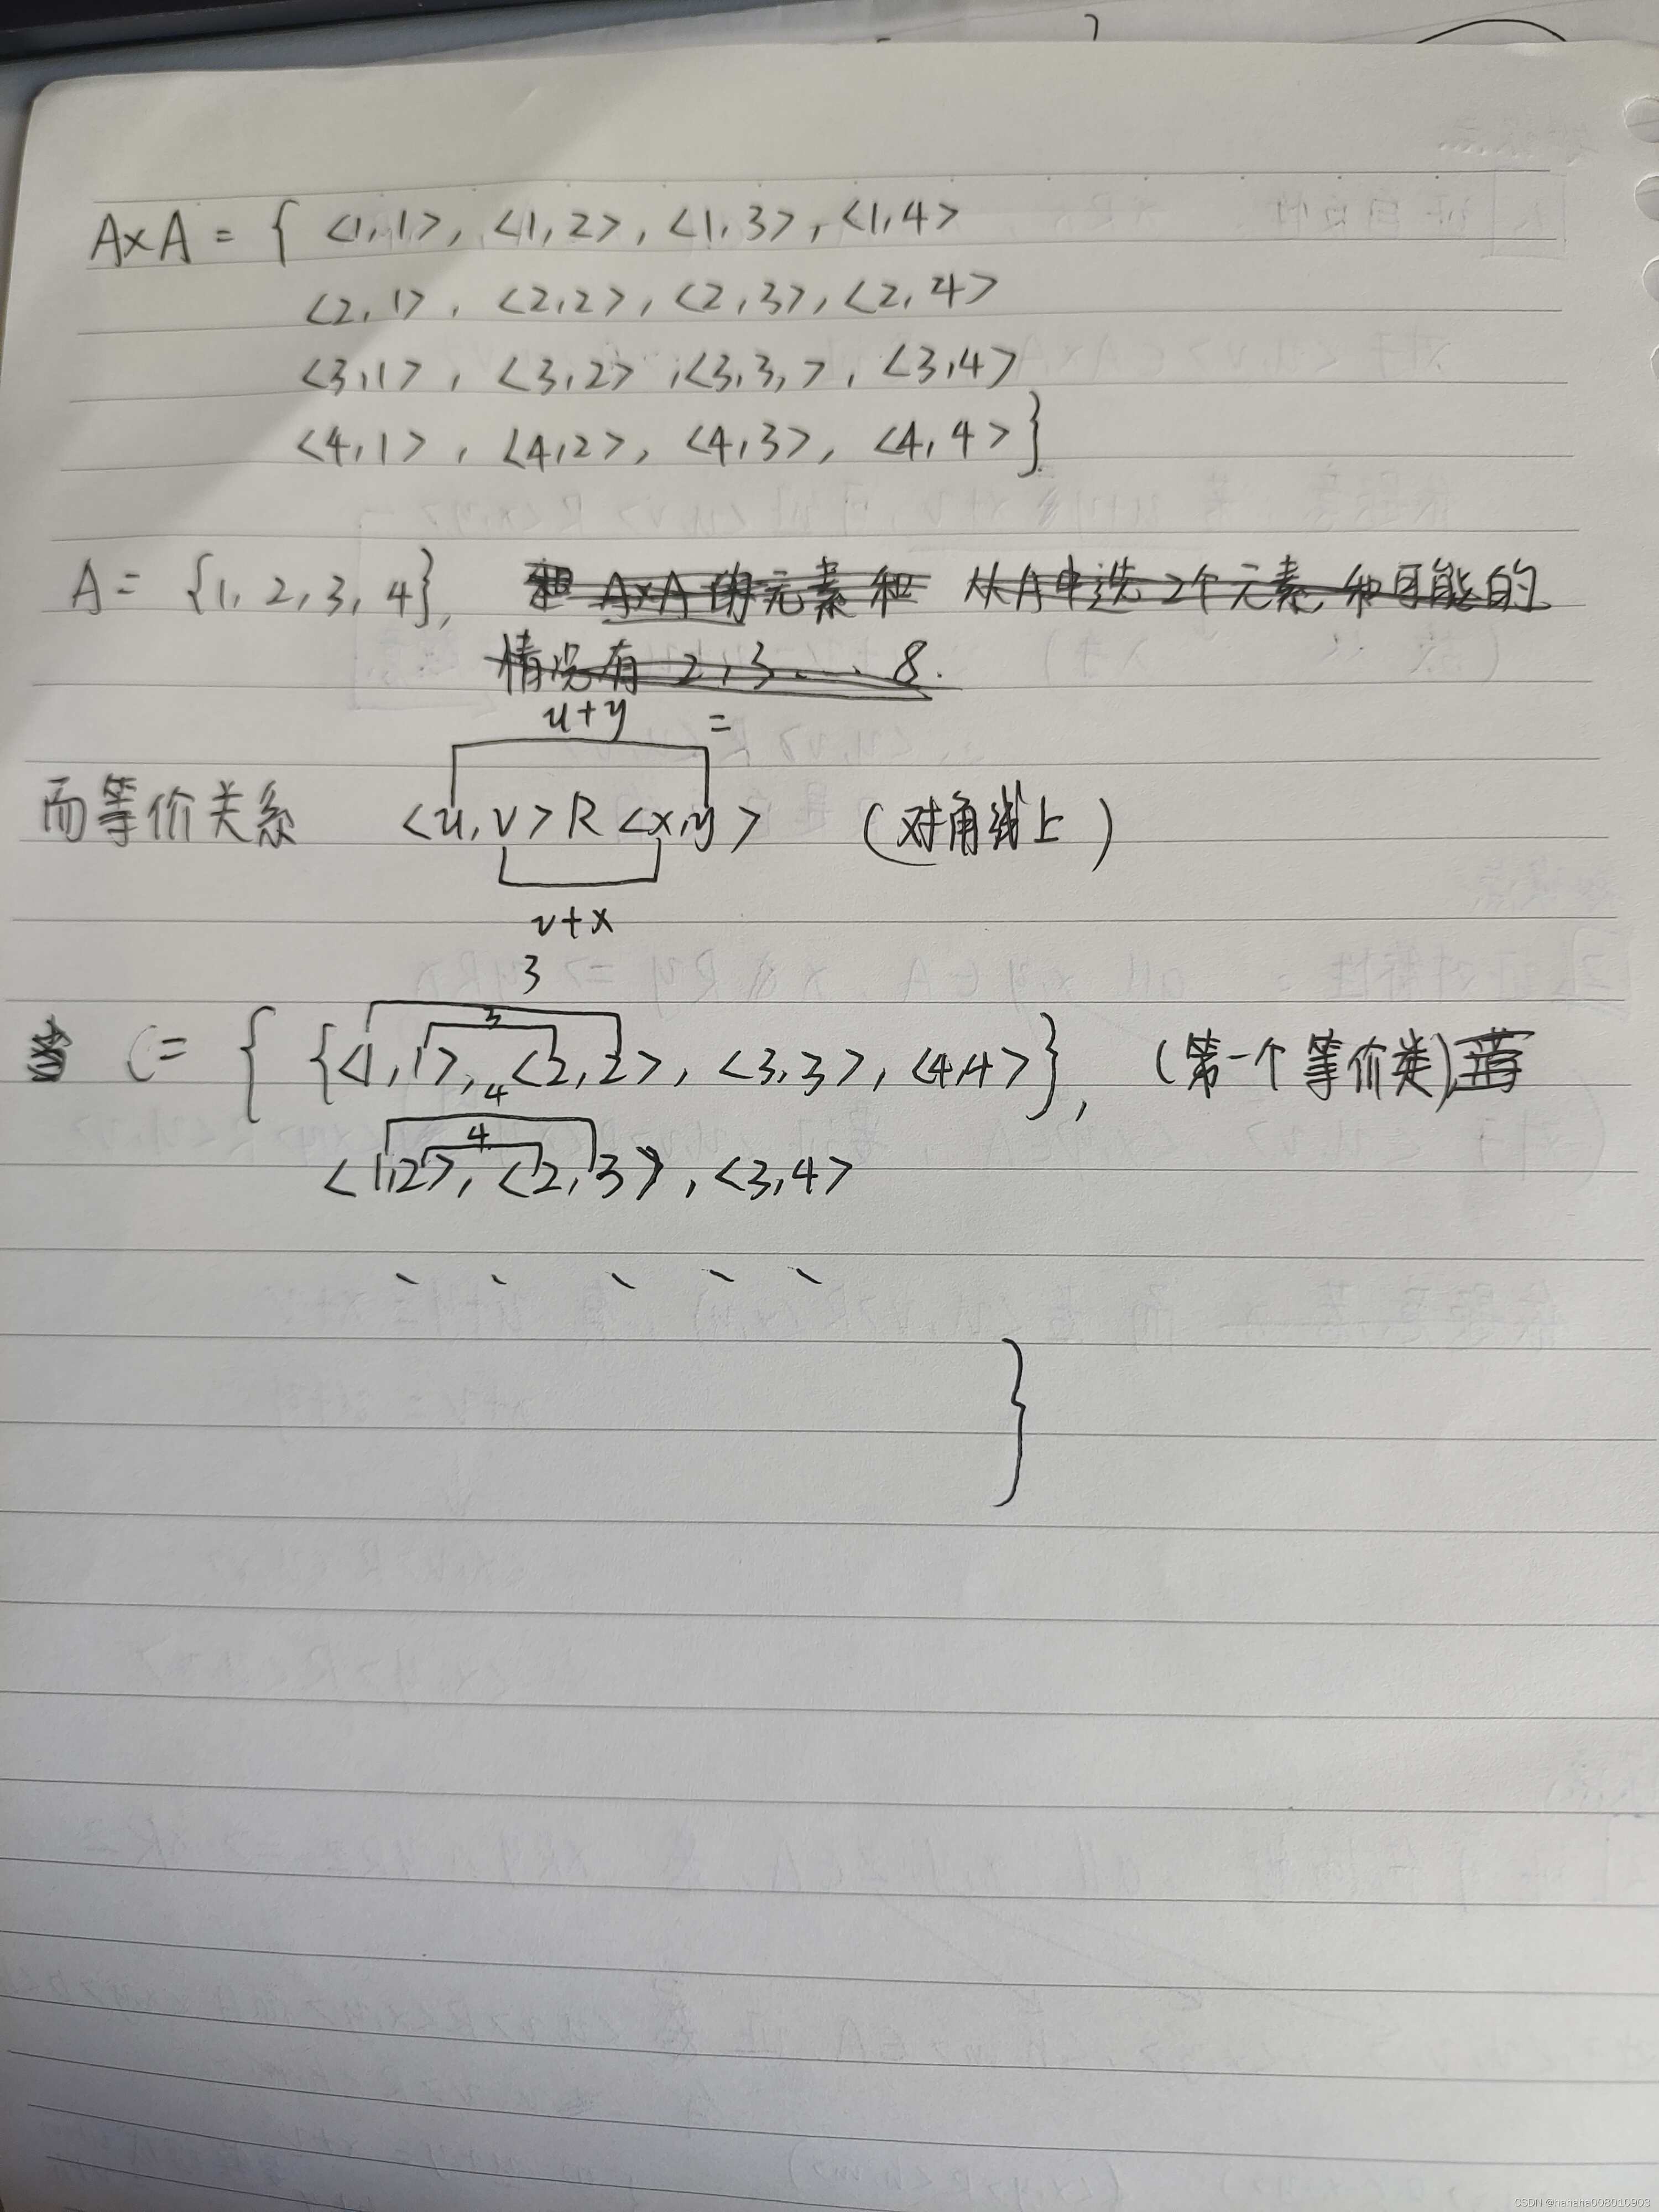 A×A = { <1,1>, <1,2>, <1,3>, <1,4>
<2,1>, <2,2>, <2,3>, <2,4>
<3,1>, <3,2>, <3,3,>, <3,4>
<4,1>, <4,2>, <4,3>, <4,4>}
A = {1, 2, 3, 4}, 和 A×A 的元素和 从A中选2个元素,和可能的
情况有 2,3.... 8.
u+y =
而等价关系 <u,v>R<x,y> (对角线上)
v+x
3
3
C= { {<1,1>, <2,2>, <3,3>, <4,4>}, (第一个等价类)
4
4
<1,2>, <2,3>, <3,4>
、 、 、 、 、
}
CSDN @hahaha008010903